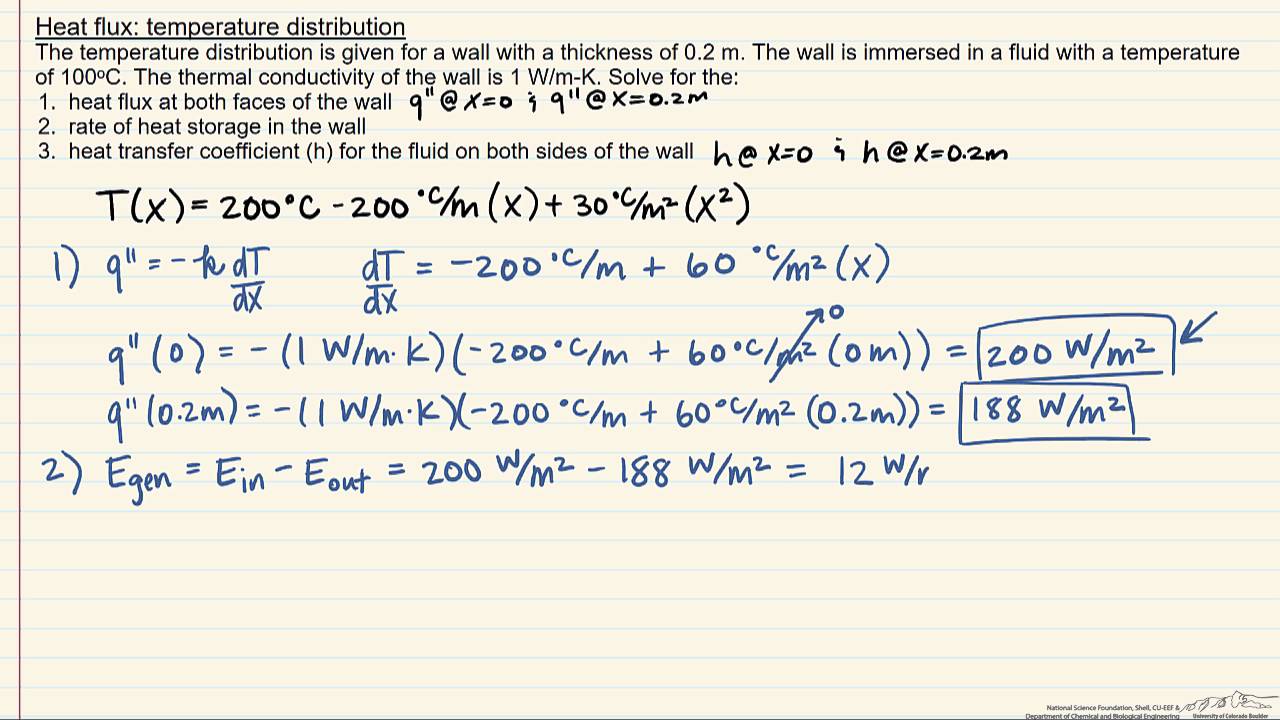 Heat flux: temperature distribution
The temperature distribution is given for a wall with a thickness of 0.2 m. The wall is immersed in a fluid with a temperature
of 100°C. The thermal conductivity of the wall is 1 W/m-K. Solve for the:
1. heat flux at both faces of the wall q"@x=0 & q"@x=0.2m
2. rate of heat storage in the wall
3. heat transfer coefficient (h) for the fluid on both sides of the wall h@x=0 & h@x=0.2m
T(x) = 200°C - 200 °C/m (x) + 30 °C/m² (x²)
1) q" = -k dT/dx dT/dx = -200 °C/m + 60 °C/m² (x)
0
q"(0) = -(1 W/m·K)(-200°C/m + 60°C/m² (0m)) = 200 W/m²
q"(0.2m) = -(1 W/m·K)(-200°C/m + 60°C/m² (0.2m)) = 188 W/m²
2) Egen = Ein - Eout = 200 W/m² - 188 W/m² = 12 W/r
National Science Foundation, Shell, CU-EEF &
Department of Chemical and Biological Engineering University of Colorado Boulder